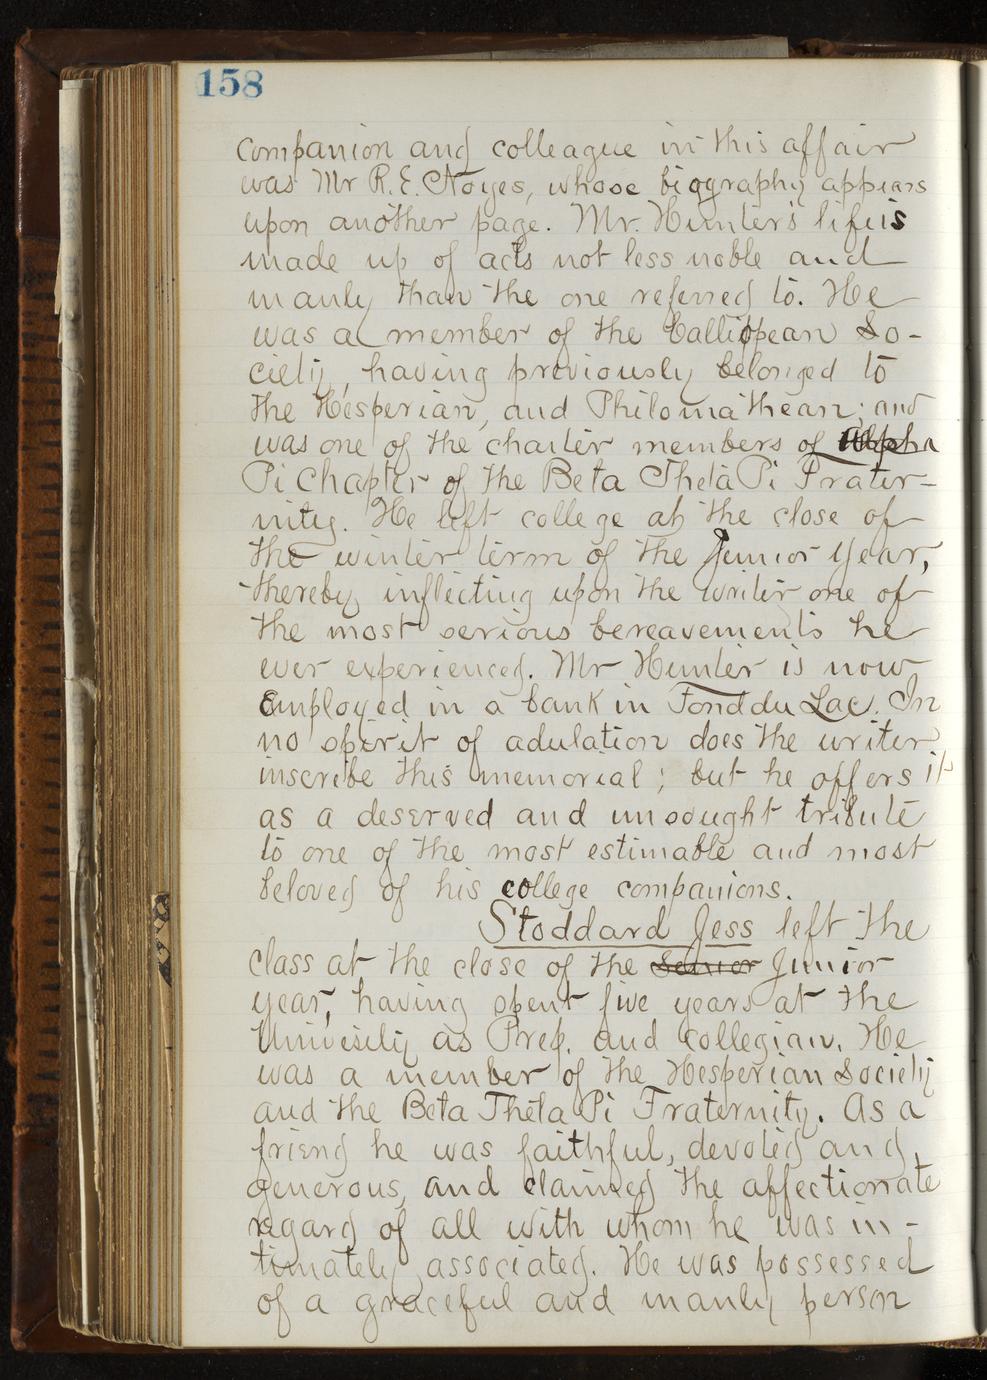 158
companion and colleague in this affair
was Mr R. E. Noyes, whose biography appears
upon another page. Mr. Hunter's life is
made up of acts not less noble and
manly than the one referred to. He
was a member of the Calliopean So-
ciety, having previously belonged to
the Hesperian, and Philomathean; and
was one of the charter members of Alpha
Pi Chapter of the Beta Theta Pi Frater-
nity. He left college at the close of
the winter term of the Junior year,
thereby inflicting upon the writer one of
the most serious bereavements he
ever experienced. Mr Hunter is now
employed in a bank in Fond du Lac. In
no spirit of adulation does the writer
inscribe this memorial; but he offers it
as a deserved and unsought tribute
to one of the most estimable and most
beloved of his college companions.
Stoddard Jess left the
class at the close of the Senior Junior
year, having spent five years at the
University as Prep. and collegian. He
was a member of the Hesperian Society
and the Beta Theta Pi Fraternity. As a
friend he was faithful, devoted and,
generous, and claimed the affectionate
regard of all with whom he was in-
timately associated. He was possessed
of a graceful and manly person